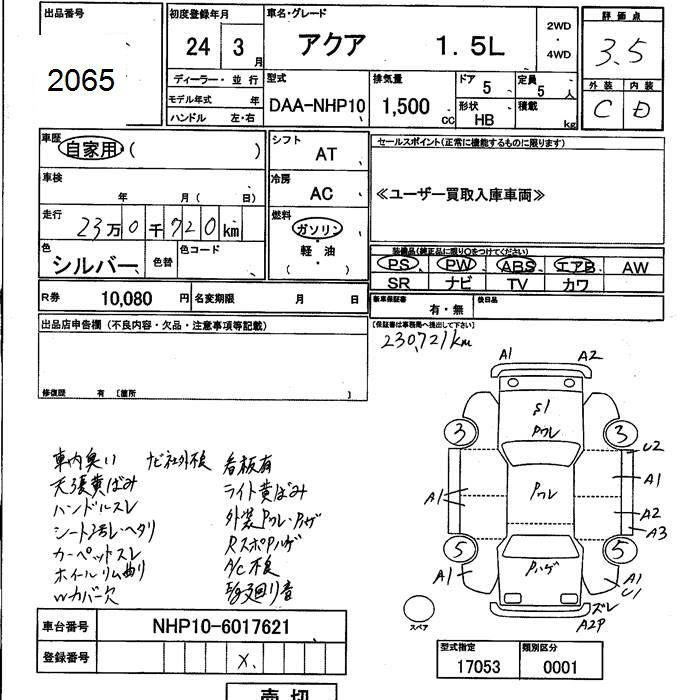 出品番号
2065
初度登録年月
24 3月
車名・グレード
アクア 1.5L
2WD
・
4WD
評価点
3.5
外装 内装
C D
ディーラー・並行
モデル年式 年
ハンドル 左・右
型式
DAA-NHP10
排気量
1,500 cc
ドア 5
形状 HB
定員 5 人
積載 kg
車歴 自家用・( )
車検 年 月( 日)
走行 23万0千720km
色 シルバー 色替 色コード
シフト AT
冷房 AC
燃料
ガソリン
・
軽・油
・
( )
セールスポイント(正常に機能するものに限ります)
≪ユーザー買取入庫車両≫
装備品(純正品に限り○をつけてください)
PS PW ABS エアB AW
SR ナビ TV カワ
新車保証書 有・無 後日品
[保証書は事務局へ提出して下さい]
R券 10,080 円 名変期限 月 日
出品店申告欄(不良内容・欠品・注意事項等記載)
修復歴 有 [箇所 ]
230,721km
車内臭い ナビ社外不良 看板有
天張黄ばみ ライト黄ばみ
ハンドルスレ
カーペットスレ
ホイールリム曲り A/C不良
Wカバー欠
A1 A2
S1
Pワレ
3 3
U2
A1
Pワレ
A1 A2
A3
5 5
A1 Pハゲ A1
U1
ズレ
A2P
スペア
車台番号 NHP10-6017621
登録番号 X.
型式指定 類別区分
17053 0001
売切